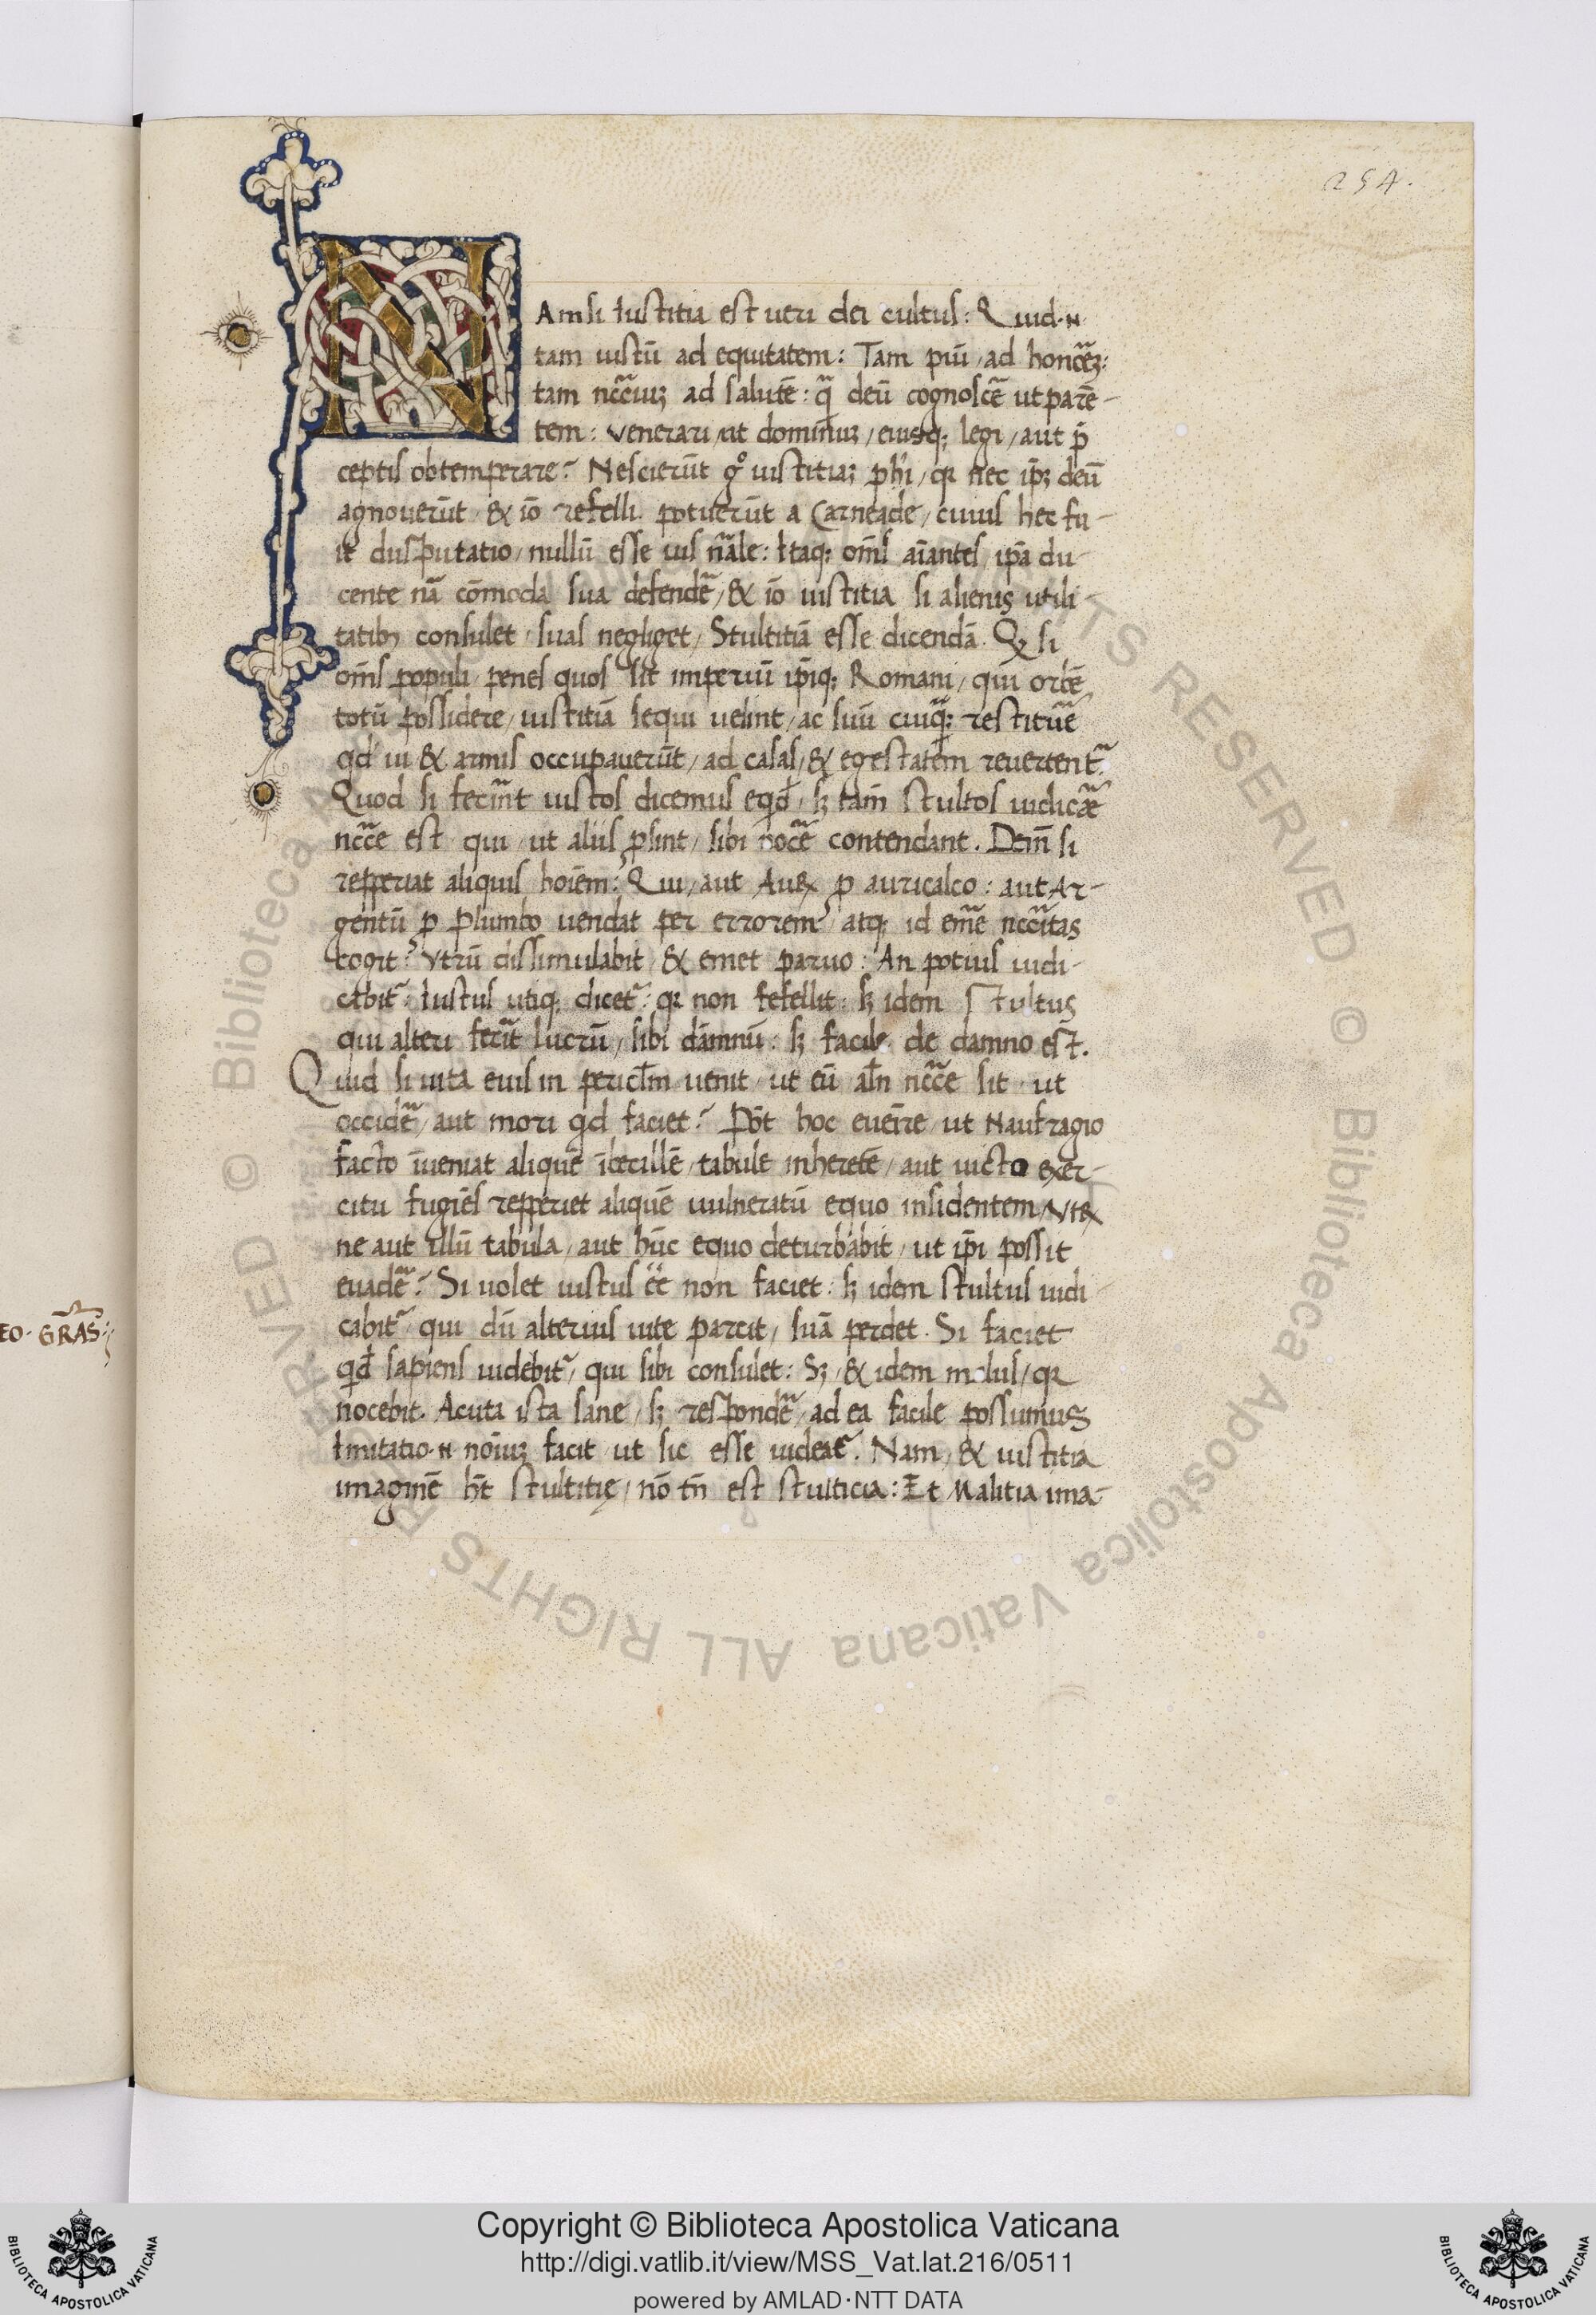 254.
NAm si iustitia est ueri dei cultus: Quid .n.
tam iustū ad equitatem: Tam piū / ad honorē:
tam nccāiuꝫ ad salutē: q̄ deū cognoscē̃ ut parē-
tem: venerari / ut dominuꝫ / eiusqꝫ legi / aut p̄
ceptis obtemperare? Nescierūt gͦ iustitiaꝫ phi / qr nec ip̄ꝫ deū
agnouerūt / & iō refelli potuerūt a Carneade / cuius hec fu-
it disputatio / nullū esse ius nāle: Itaqꝫ om̄s aīantes ip̄a du-
cente nā cōmoda sua defendē̃ / & iō iustitia si alienis utili-
tatibꝫ consulet / suas negliget / Stultitiā esse dicendā. Qꝫ si
om̄s populi / penes quos sit imperiū ip̄iqꝫ Romani / qui orbē
totū possidere / iustitiā sequi uelint / ac suū cuiqꝫ restituē̃
qd ui & armis occupauerūt / ad casas / & egestatem reuertent̃.
Quod si fecīnt iustos dicemus eqd / sꝫ tam̄ stultos iudicāē
nccē̃ est qui / ut aliis ꝓsint / sibi nocē̃ contendant. Dem̄ si
repperiat aliquis hoīem: Qui / aut Auꝝ p auricalco: aut Ar-
gentū p Plumbo uendat per errorem / atqꝫ id emē̃ nccītas
cogit? Vtrū dissimulabit / & emet paruo: An potius iudi-
cabit̃: Iustus utiqꝫ dicet̃: qr non fefellit: sꝫ idem Stultus
qui alteri fecīt lucrū / sibi dāmnū: sꝫ facile de damno est.
Quid si uita eius in pericl̄m uenit / ut eū al̄n nccē̃ sit / ut
occidē̃ / aut mori qd faciet? Pōt hoc euēire / ut Naufragio
facto īueniat aliquē ībecillē / tabule inheretē / aut uicto exer-
citu fugiēs repperiet aliquē uulneratū equo insidentem / Vtꝝ
ne aut illū tabula / aut hūc equo deturbabit / ut ip̄i possit
euadē̃? Si uolet iustus ēē non faciet: sꝫ idem stultus iudi-
cabit̃ / qui dū alterius uite parcit / suā perdet. Si faciet
qd sapiens uidebit̃ / qui sibi consulet: Sꝫ / & idem malus / qr
nocebit. Acuta ista sane / sꝫ respondē̃ / ad ea facile possumus
Imitatio .n. noīuꝫ facit / ut sic esse uideat̃. Nam / & iustitia
imaginē hēt stultitię / nō tn̄ est stulticia: Et Malitia ima-
EO · GRĀS:
© Biblioteca Apostolica Vaticana ALL RIGHTS RESERVED
Copyright © Biblioteca Apostolica Vaticana
http://digi.vatlib.it/view/MSS_Vat.lat.216/0511
powered by AMLAD·NTT DATA
BIBLIOTECA APOSTOLICA VATICANA
BIBLIOTECA APOSTOLICA VATICANA